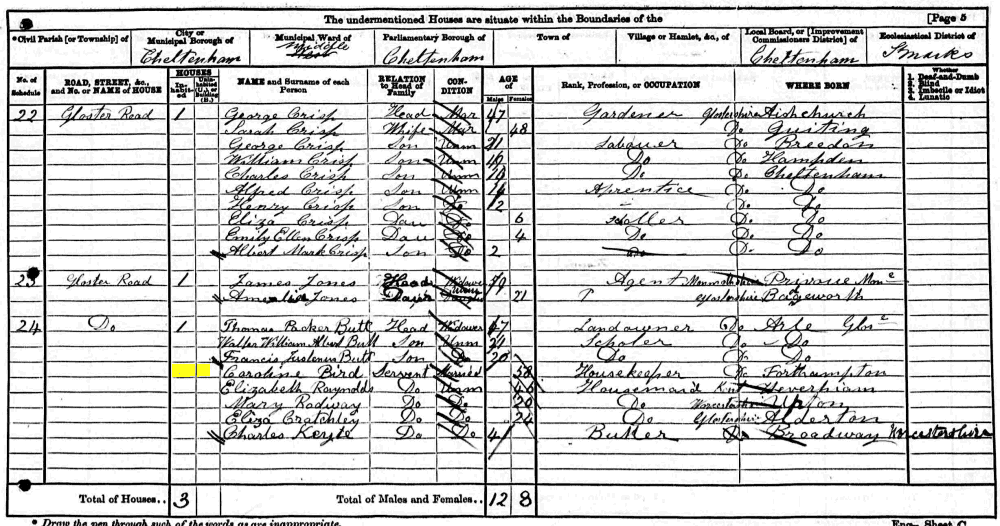 The undermentioned Houses are situate within the Boundaries of the [Page 5
*Civil Parish [or Township] of City or Municipal Borough of Municipal Ward of Parliamentary Borough of Town of Village or Hamlet, &c., of Local Board, or [Improvement Commissioners District] of Ecclesiastical District of
Cheltenham Middle Cheltenham Cheltenham St Marks
No. of Schedule ROAD, STREET, &c., and No. or NAME of HOUSE HOUSES Inhabited Uninhabited (U.), or Building (B.) NAME and Surname of each Person RELATION to Head of Family CONDITION AGE of Males Females Rank, Profession, or OCCUPATION WHERE BORN Whether 1. Deaf-and-Dumb 2. Blind 3. Imbecile or Idiot 4. Lunatic
22 Gloster Road 1 George Crisp Head Mar 47 Gardener Glostershire
Sarah Crisp Wife Mar 48 Do Guiting
George Crisp Son Unm 21 Labouer Do Breedon
William Crisp Son Unm Do Do Hampden
Charles Crisp Son Unm Do Do Cheltenham
Alfred Crisp Son Unm Aprentice Do Do
Henry Crisp Son Do 12 Do Do
Eliza Crisp Dau Do 6 Do Do
Emily Ellen Crisp Dau Do 4 Do Do Do
Albert Mark Crisp Son Do 2 Do Do
23 Gloster Road 1 James Jones Head Widower 70 Agent Monmouthshire
Jones 21 Glostershire Badgeworth
24 Do 1 Thomas Packer Butt Head Widower 47 Landowner Do Arle Glos
Walter William Albert Butt Son Unm 21 Scholer Do Do
Francis Butt Son Do 20 Do Do Do
Caroline Bird Servent Married 58 Housekeeper Do Forthampton
Elizabeth Raynolds Do Unm 46 Housemaid Kent
Mary Rodway Do Do 30 Do Worcestershire Upton
Eliza Cratchley Do Do 24 Do Glostershire Alderton
Charles Do Do Butler Do Broadway Worcestershire
Total of Houses.. 3 Total of Males and Females.. 12 8
* Draw the pen through such of the words as are inappropriate. Eng—Sheet C.